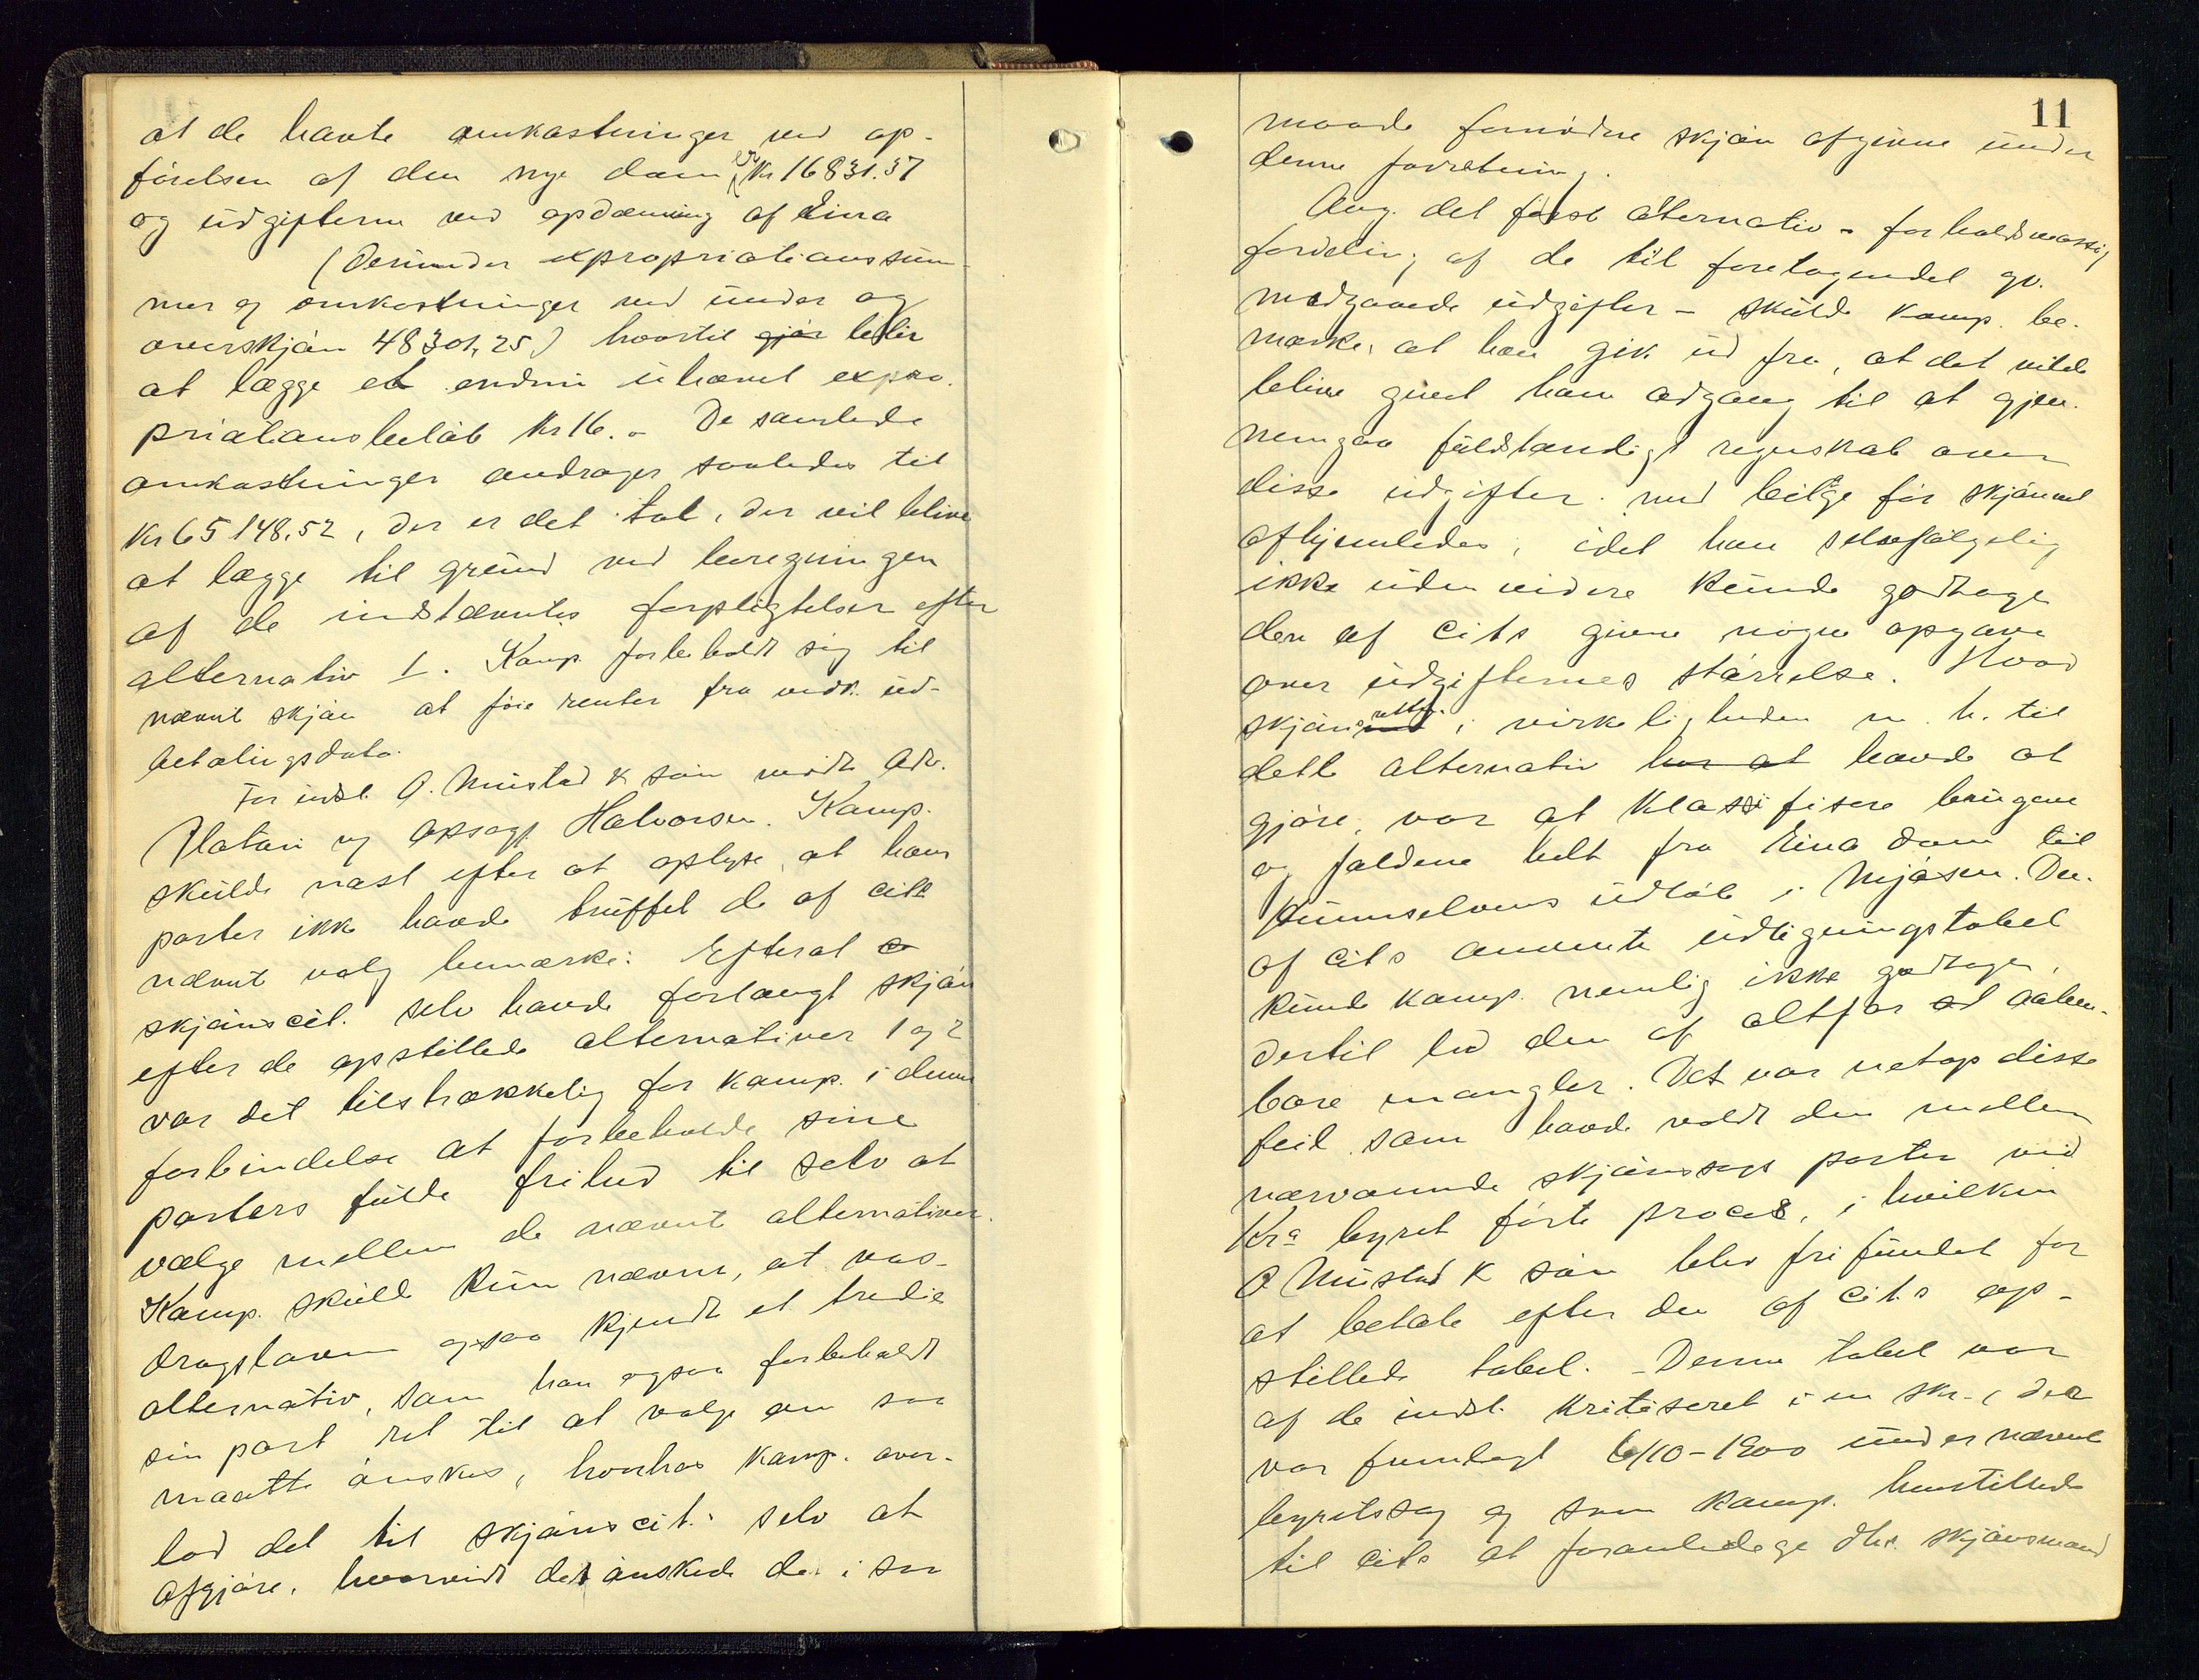 at de havte omkostninger ved op-
førelsen af den nye dam er Kr 16831.37
og udgifterne ved opdæmning af Eina
(derunder expropriationssum-
mer og omkostninger ved under og
overskjøn 48301,25) hvortil gjør blir
at lægge et endnu uhævet expro-
priationsbeløb kr 16.- De samlede
omkostninger andrager saaledes til
Kr 65148,52, der er det tal, der vil blive
at lægge til grund ved beregningen
af de indstævntes forpligtelser efter
alternativ 1. Komp. forbeholdt sig til
nævnt skjøn at føie renter fra vedk. ud-
betalingsdato.
For indst. O. Mustad & søn mødte Adv.
Platou og opsagf. Halvorsen. Komp.
skulde næst efter at oplyse, at hans
parter ikke havde truffet de af citt
nævnt valg bemærke: Efterat
skjønscit. selv havde forlangt skjøn
efter de opstillede alternativer 1 og 2
var det tilstrækkelig for Komp. i denne
forbindelse at forbeholde sine
parters fulde frihed til selv at
vælge mellem de nævnte alternativer.
Komp. skulde kun nævne, at vas-
dragsloven ogsaa kjendte et tredie
alternativ, som han ogsaa forbeholdt
sin part ret til at vælge om saa
maatte ønskes, hvorhos Komp. over-
lod det til skjønscit. selv at
afgjøre, hvorvidt det ønskede de i saa
11
maade fornødne skjøn afgivne under
denne forretning.
Ang. det første alternativ - forholdsmæssig
fordeling af de til foretagendet gv.
medgaaede udgifter - skulde Komp. be-
mærke, at han gik ud fra, at det vilde
blive givet ham adgang til at gjen-
nemgaa fuldstændigt regnskab over
disse udgifter med bilge før skjønnet
afhjemledes, idet han selvfølgelig
ikke uden videre kunde godtage
den af cits givne nøgne opgave
over udgifternes størrelse. Hvad
skjønsretten i virkeligheden m. h. til
dette alternativ har at havde at
gjøre, var at klassifisere brugene
og faldene helt fra Eina dam til
Hunnselvens udløb i Mjøsen. Den
af cits anvendte udligningstabel
kunde Komp. nemlig ikke godtage,
dertil led den af altfor aaben-
bare mangler. Det var netop disse
feil som havde voldt den mellem
nærværende skjønssags parter ved
Kra byret førte proces, i hvilken
O Mustad & søn blev frifundet for
at betale efter den af cit.s op-
stillede tabel. - Denne tabel var
af de indst. kritiseret i en skr., der
var fremlagt 6/10-1900 under nævnte
byretssag og som Komp. henstillede
til cits at foranledige dhr. skjønsmænd